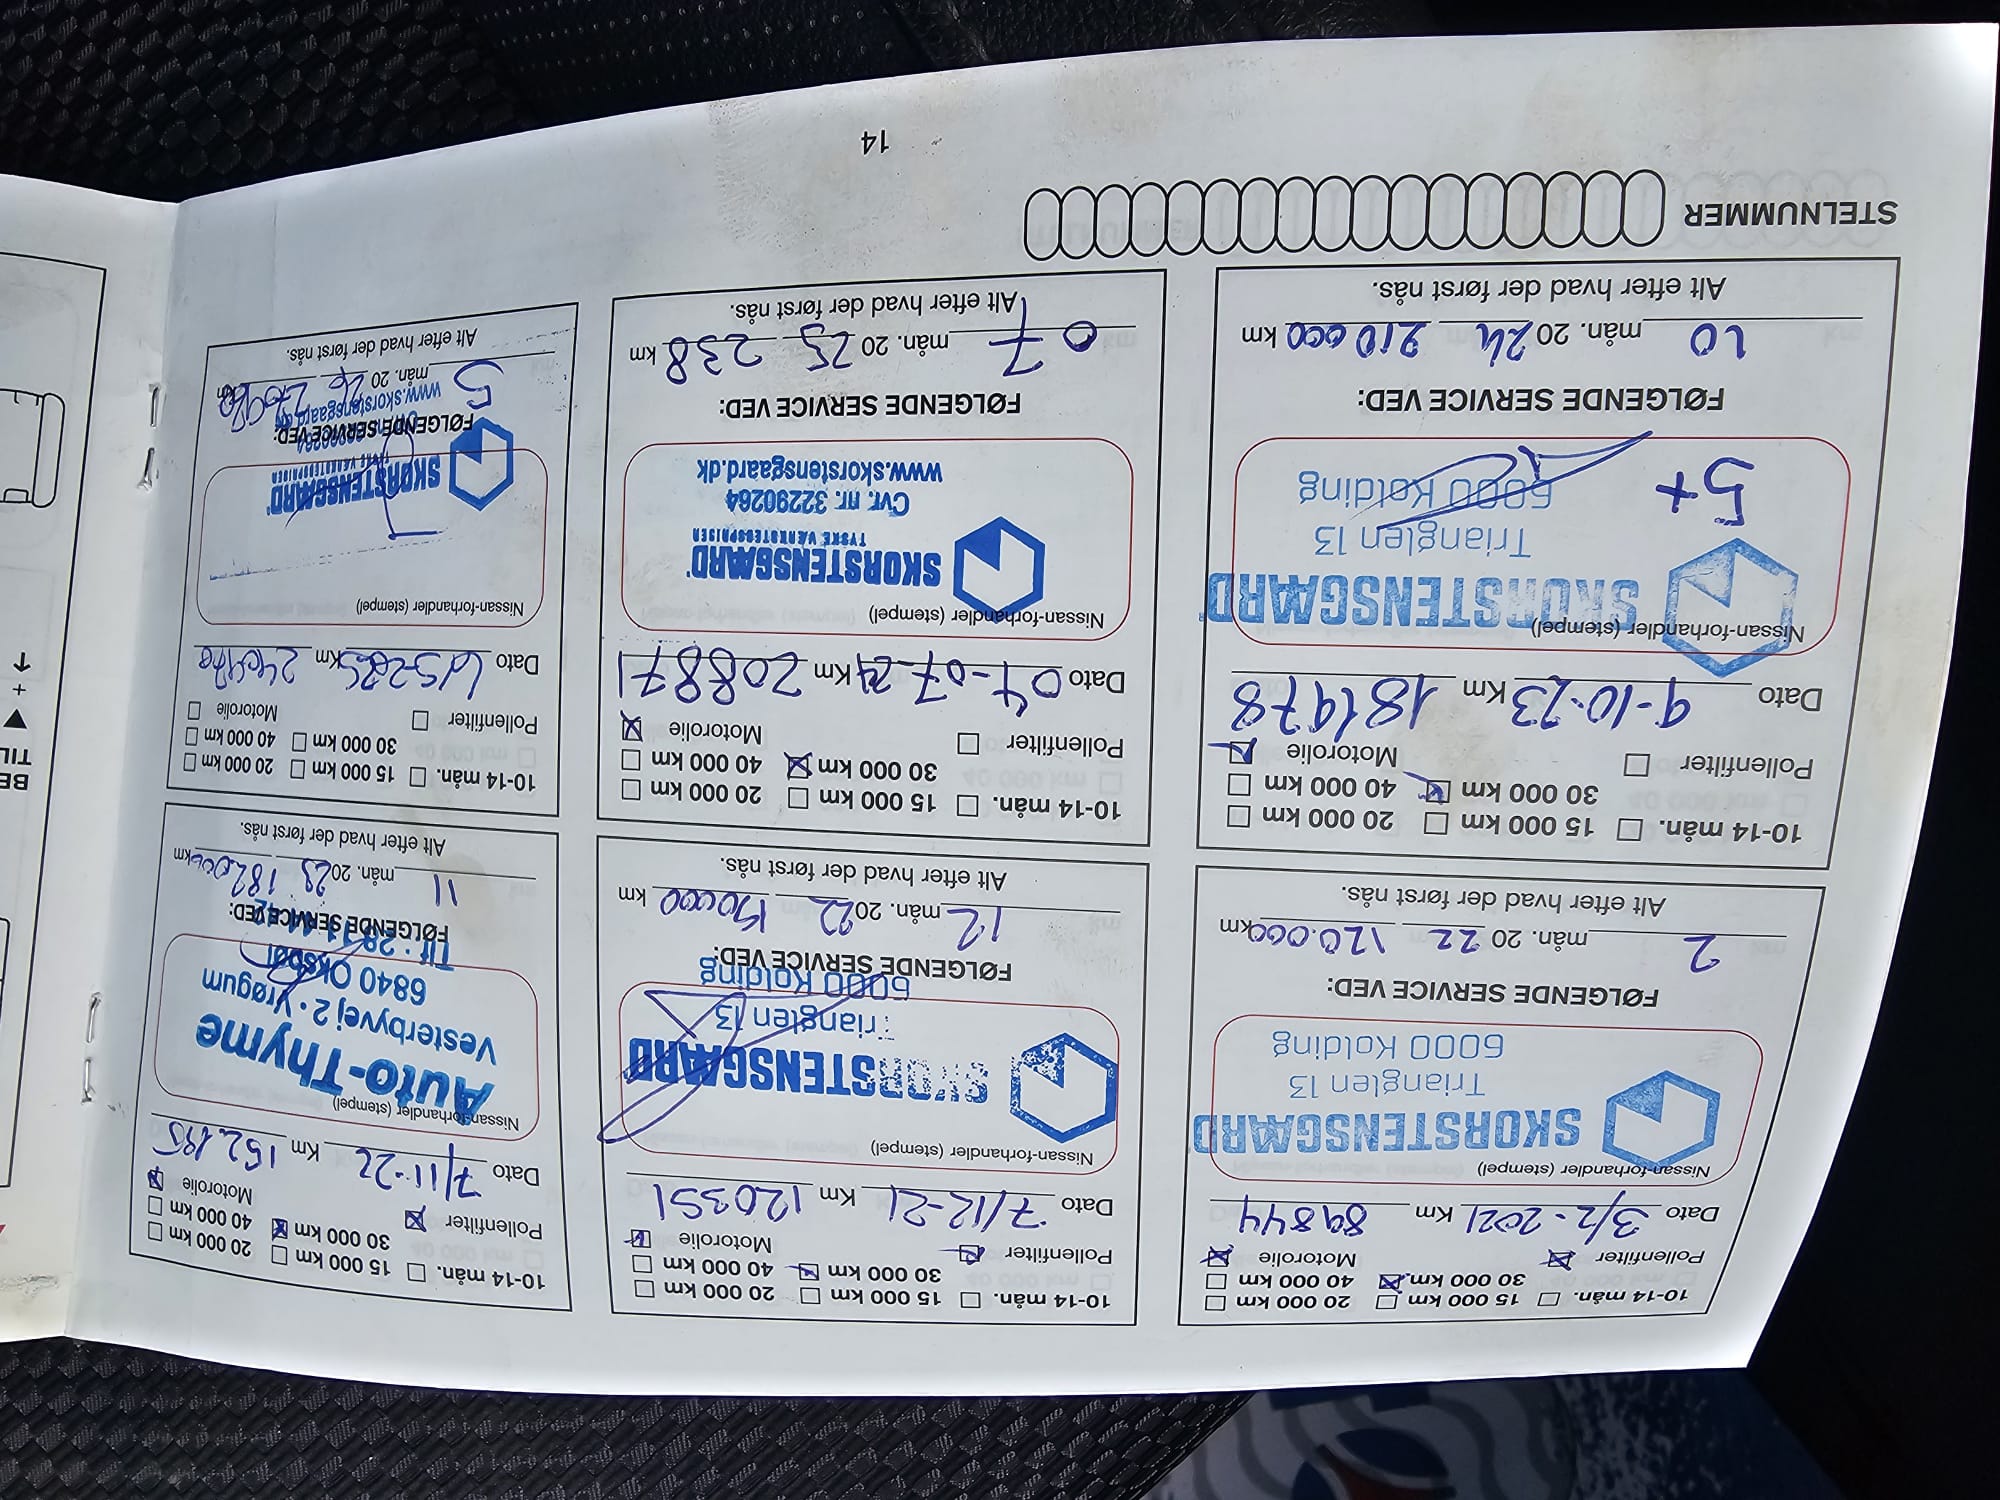 10-14 mån. 15 000 km 20 000 km
30 000 km 40 000 km
Pollenfilter Motorolie
Dato 3/2-2021 Km 89844
Nissan-forhandler (stempel)
SKORSTENSGAARD
Trianglen 13
6000 Kolding
FØLGENDE SERVICE VED:
2 mån. 20 22 120.000 km
Alt efter hvad der først nås.
10-14 mån. 15 000 km 20 000 km
30 000 km 40 000 km
Pollenfilter Motorolie
Dato 7/12-21 Km 120351
Nissan-forhandler (stempel)
SKORSTENSGAARD
Trianglen 13
6000 Kolding
FØLGENDE SERVICE VED:
12 mån. 2022 150000 km
Alt efter hvad der først nås.
10-14 mån. 15 000 km 20 000 km
30 000 km 40 000 km
Pollenfilter Motorolie
Dato 7/11-22 Km 152.195
Nissan-forhandler (stempel)
Auto-Thyme
Vesterbyvej 2 • Vrøgum
6840 Oksbøl
Tlf.:
FØLGENDE SERVICE VED:
11 mån. 2023 182.000 km
Alt efter hvad der først nås.
10-14 mån. 15 000 km 20 000 km
30 000 km 40 000 km
Pollenfilter Motorolie
Dato 9-10-23 Km 181978
Nissan-forhandler (stempel)
SKORSTENSGAARD
Trianglen 13
6000 Kolding
5+
FØLGENDE SERVICE VED:
10 mån. 2024 210000 km
Alt efter hvad der først nås.
10-14 mån. 15 000 km 20 000 km
30 000 km 40 000 km
Pollenfilter Motorolie
Dato 04-07-24 Km 208871
Nissan-forhandler (stempel)
SKORSTENSGAARD
TYSKE VÆRKSTEDSPRISER
Cvr. nr. 32290264
www.skorstensgaard.dk
FØLGENDE SERVICE VED:
07 mån. 20 25 238 km
Alt efter hvad der først nås.
10-14 mån. 15 000 km 20 000 km
30 000 km 40 000 km
Pollenfilter Motorolie
Dato Km
Nissan-forhandler (stempel)
SKORSTENSGAARD
TYSKE VÆRKSTEDSPRISER
FØLGENDE SERVICE VED:
www.skorstensgaard.dk
5 mån. 20 26 km
Alt efter hvad der først nås.
STELNUMMER
14
BE
TIL
+